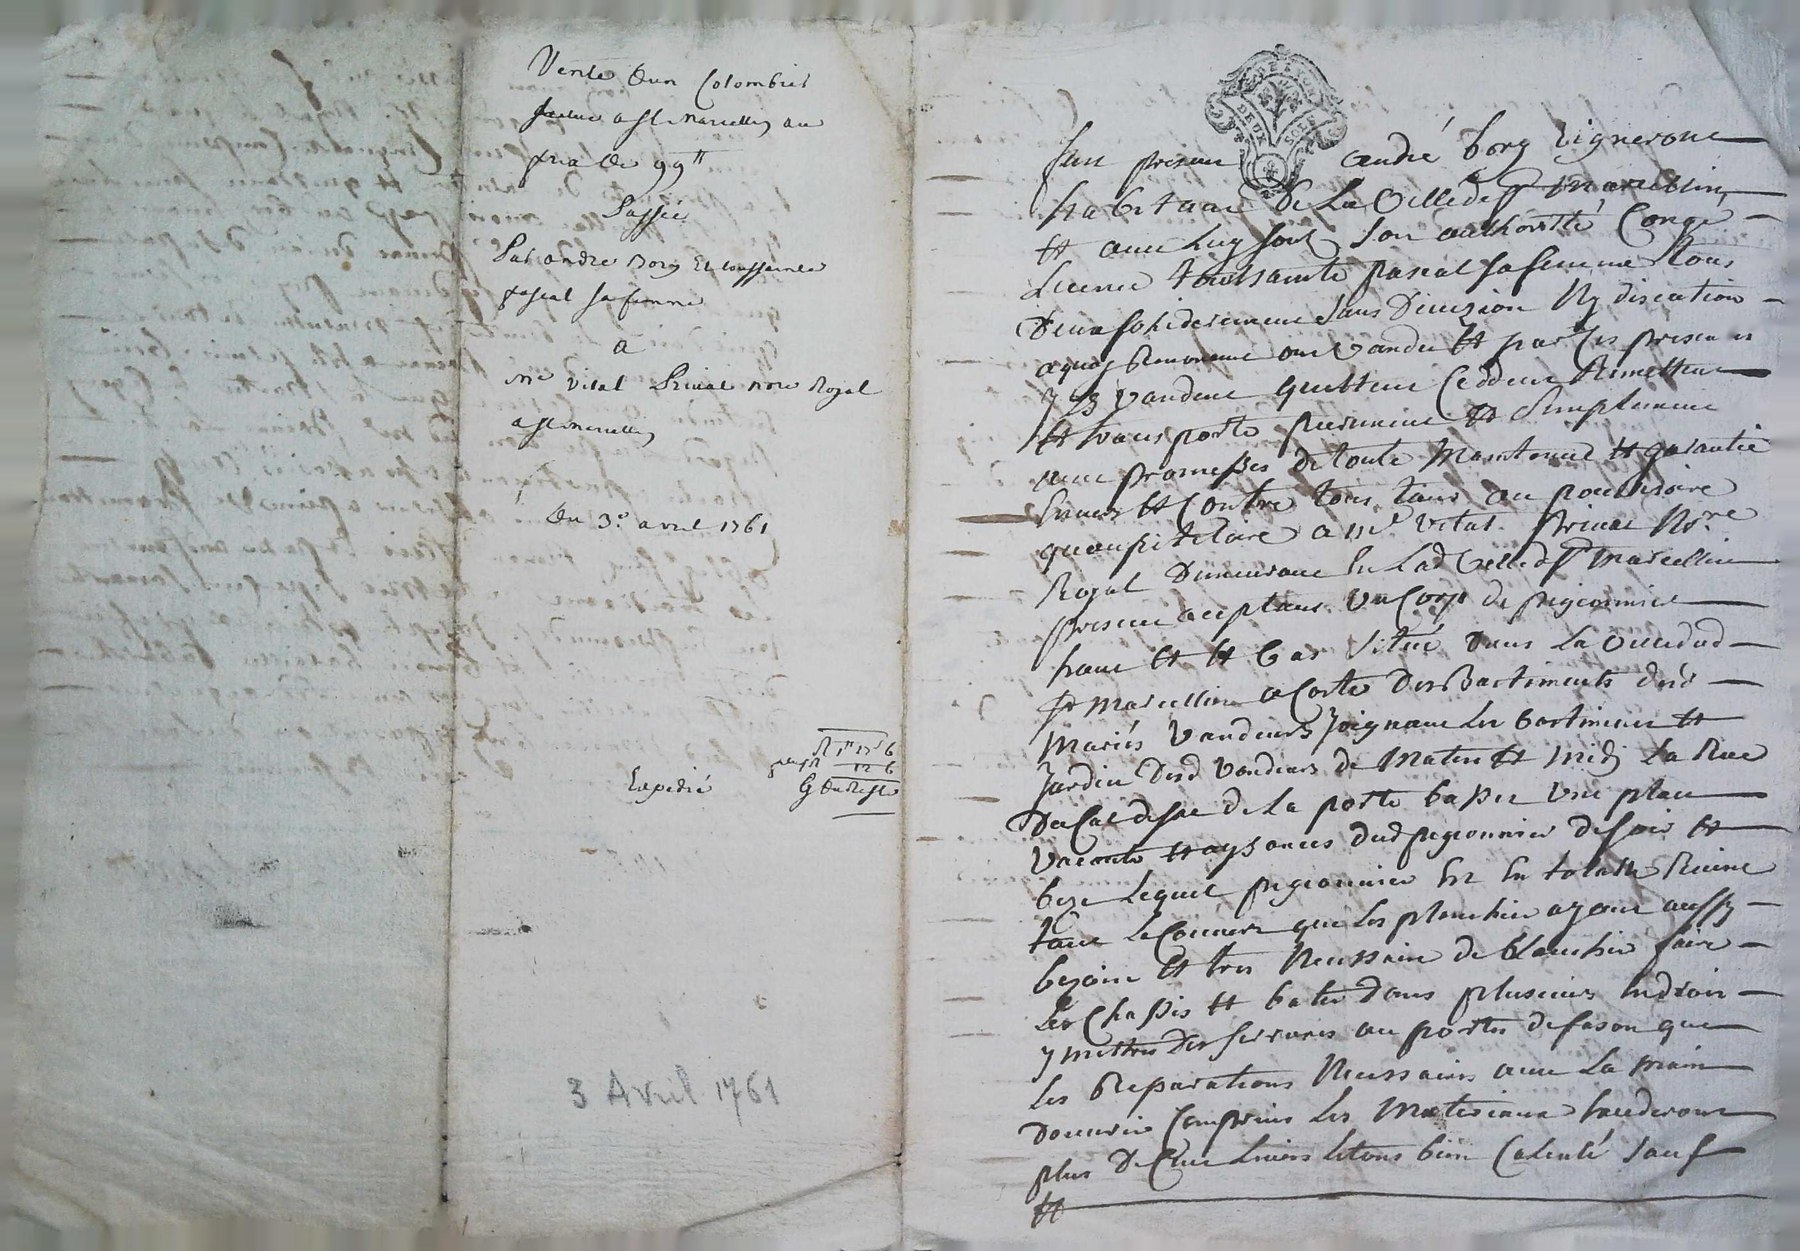 Vente d'un Colombier
scitue a St Marcellin au
prix de 99 ₶
Passée
Par andre Bory Et toussainte
pascal sa femme
a
Me vital Privat nore Royal
a St Marcellin
Du 3e avril 1761
Expedié
12 6
3 Avril 1761
DEUX SOLS
Sun presant andré bory vigneront
habitant de La Ville de St marcellin,
Et avec luy sous son authorité Congé
Licence toussainte pascal sa femme tous
Deux solideremenc sans Divizion Ny discution
aquoy Renoncenc ont vandu Et par Ces presentes
vandenc quittenc Ceddenc Remettenc
Et transporte purement Et Simplement
avec promesses de toute Maintenue Et garantie
Envers Et Contre tous tant au poucessoire
quaupetitoire a Me vital privat Nore
Royal Demeurant En Lad Ville de St Marcellin
presant aceptant un Corps de pigeonnier
haut Et Et bas situé dans La Ville dud
St Marcellin a Coste des Bastiments desd
Mariés Vandeurs Joignant les bastiments Et
Jardin desd Vandeurs de Matin Et Midy La Rue
de la porte basse une place
vacante Et aysances dud pigeonnier de soir Et
bize Lequel pigeonnier En totalle Ruine
tant Le Couvert que Les plancher ayant aussy
bezoin Et tres Necessaire de blanchir faire
Les Chassis Et bater dans plusieurs Endroit
y mettre des serrures au portes de fason que
Les Reparations Necessaires avec La main
Douvrie Comprins Les Materiaux
plus De Cent Livres Letout bien Calculé sauf
Et